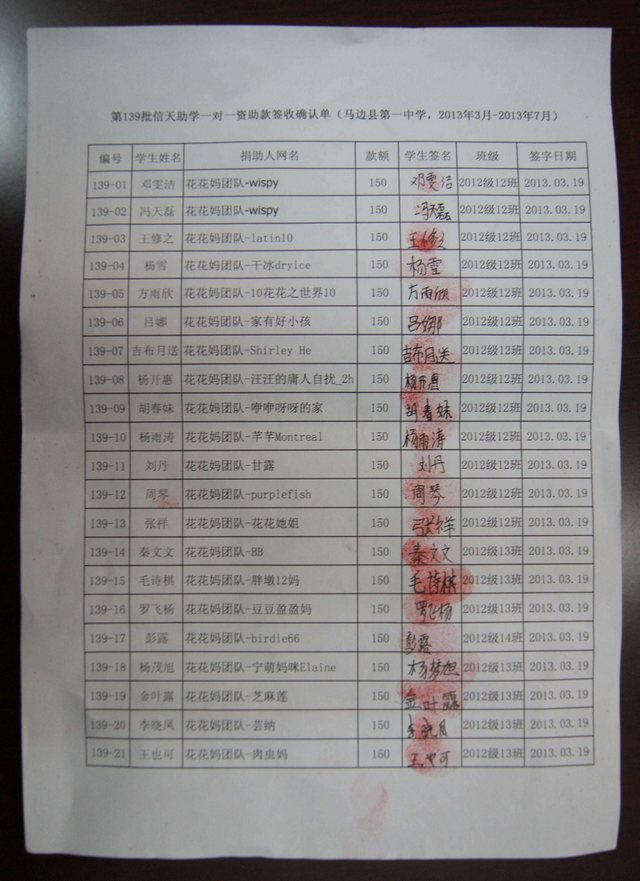 第139批信天助学一对一资助款签收确认单（马边县第一中学，2013年3月-2013年7月）
编号 学生姓名 捐助人网名 款额 学生签名 班级 签字日期
139-01 邓雯洁 花花妈团队-wispy 150 邓雯洁 2012级12班 2013.03.19
139-02 冯天磊 花花妈团队-wispy 150 冯天磊 2012级12班 2013.03.19
139-03 王修之 花花妈团队-latin10 150 王修之 2012级12班 2013.03.19
139-04 杨雪 花花妈团队-干冰dryice 150 杨雪 2012级12班 2013.03.19
139-05 方雨欣 花花妈团队-10花花之世界10 150 方雨欣 2012级12班 2013.03.19
139-06 吕娜 花花妈团队-家有好小孩 150 吕娜 2012级12班 2013.03.19
139-07 吉布月送 花花妈团队-Shirley He 150 吉布月送 2012级12班 2013.03.19
139-08 杨开惠 花花妈团队-汪汪的庸人自扰_2h 150 杨开惠 2012级12班 2013.03.19
139-09 胡春妹 花花妈团队-咿咿呀呀的家 150 胡春妹 2012级12班 2013.03.19
139-10 杨雨涛 花花妈团队-芊芊Montreal 150 杨雨涛 2012级12班 2013.03.19
139-11 刘丹 花花妈团队-甘露 150 刘丹 2012级12班 2013.03.19
139-12 周琴 花花妈团队-purplefish 150 周琴 2012级12班 2013.03.19
139-13 张祥 花花妈团队-花花她姐 150 张祥 2012级12班 2013.03.19
139-14 秦文文 花花妈团队-BB 150 秦文文 2012级13班 2013.03.19
139-15 毛诗棋 花花妈团队-胖墩12妈 150 毛诗棋 2012级13班 2013.03.19
139-16 罗飞杨 花花妈团队-豆豆盈盈妈 150 罗飞杨 2012级13班 2013.03.19
139-17 彭露 花花妈团队-birdie66 150 彭露 2012级14班 2013.03.19
139-18 杨茂旭 花花妈团队-宁萌妈咪Elaine 150 2012级13班 2013.03.19
139-19 金叶露 花花妈团队-芝麻莲 150 金叶露 2012级13班 2013.03.19
139-20 李晓凤 花花妈团队-芸纳 150 2012级13班 2013.03.19
139-21 王也可 花花妈团队-肉虫妈 150 王也可 2012级13班 2013.03.19